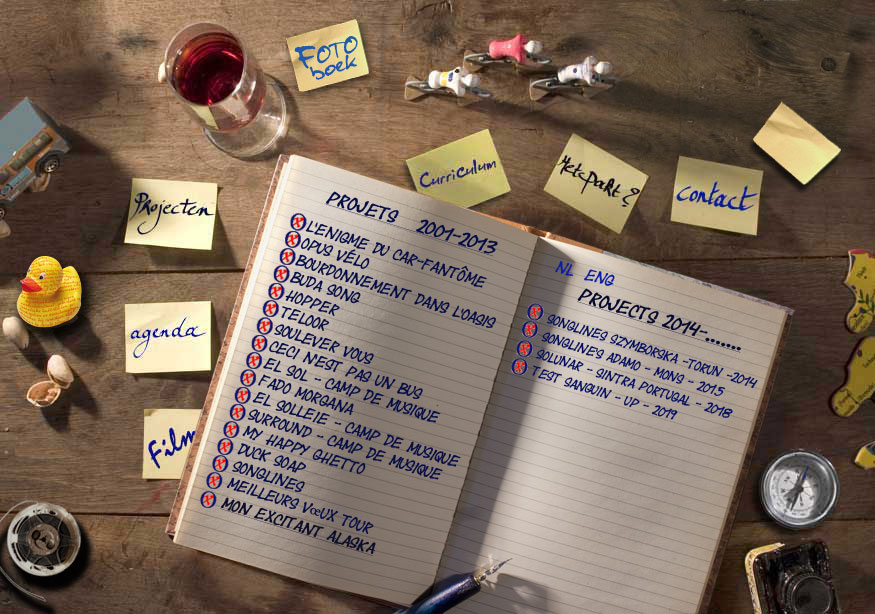 FOTO
boek
Curriculum
Hetspakt?
contact
Projecten
agenda
Film
PROJETS 2001-2013
L'ENIGME DU CAR-FANTÔME
OPUS VÉLO
BOURDONNEMENT DANS L'OASIS
BUDA SONG
HOPPER
TELOOR
SOULEVER VOUS
CECI N'EST PAS UN BUS
EL SOL - CAMP DE MUSIQUE
FADO MORGANA
EL SOLLEIE - CAMP DE MUSIQUE
SURROUND - CAMP DE MUSIQUE
MY HAPPY GHETTO
DUCK SOAP
SONGLINES
MEILLEURS VœUX TOUR
MON EXCITANT ALASKA
NL ENG
PROJECTS 2014-.......
SONGLINES SZYMBORSKA -TORUN -2014
SONGLINES ADAMO - MONS - 2015
SOLUNAR - SINTRA PORTUGAL - 2018
TEST SANGUIN - UP - 2019